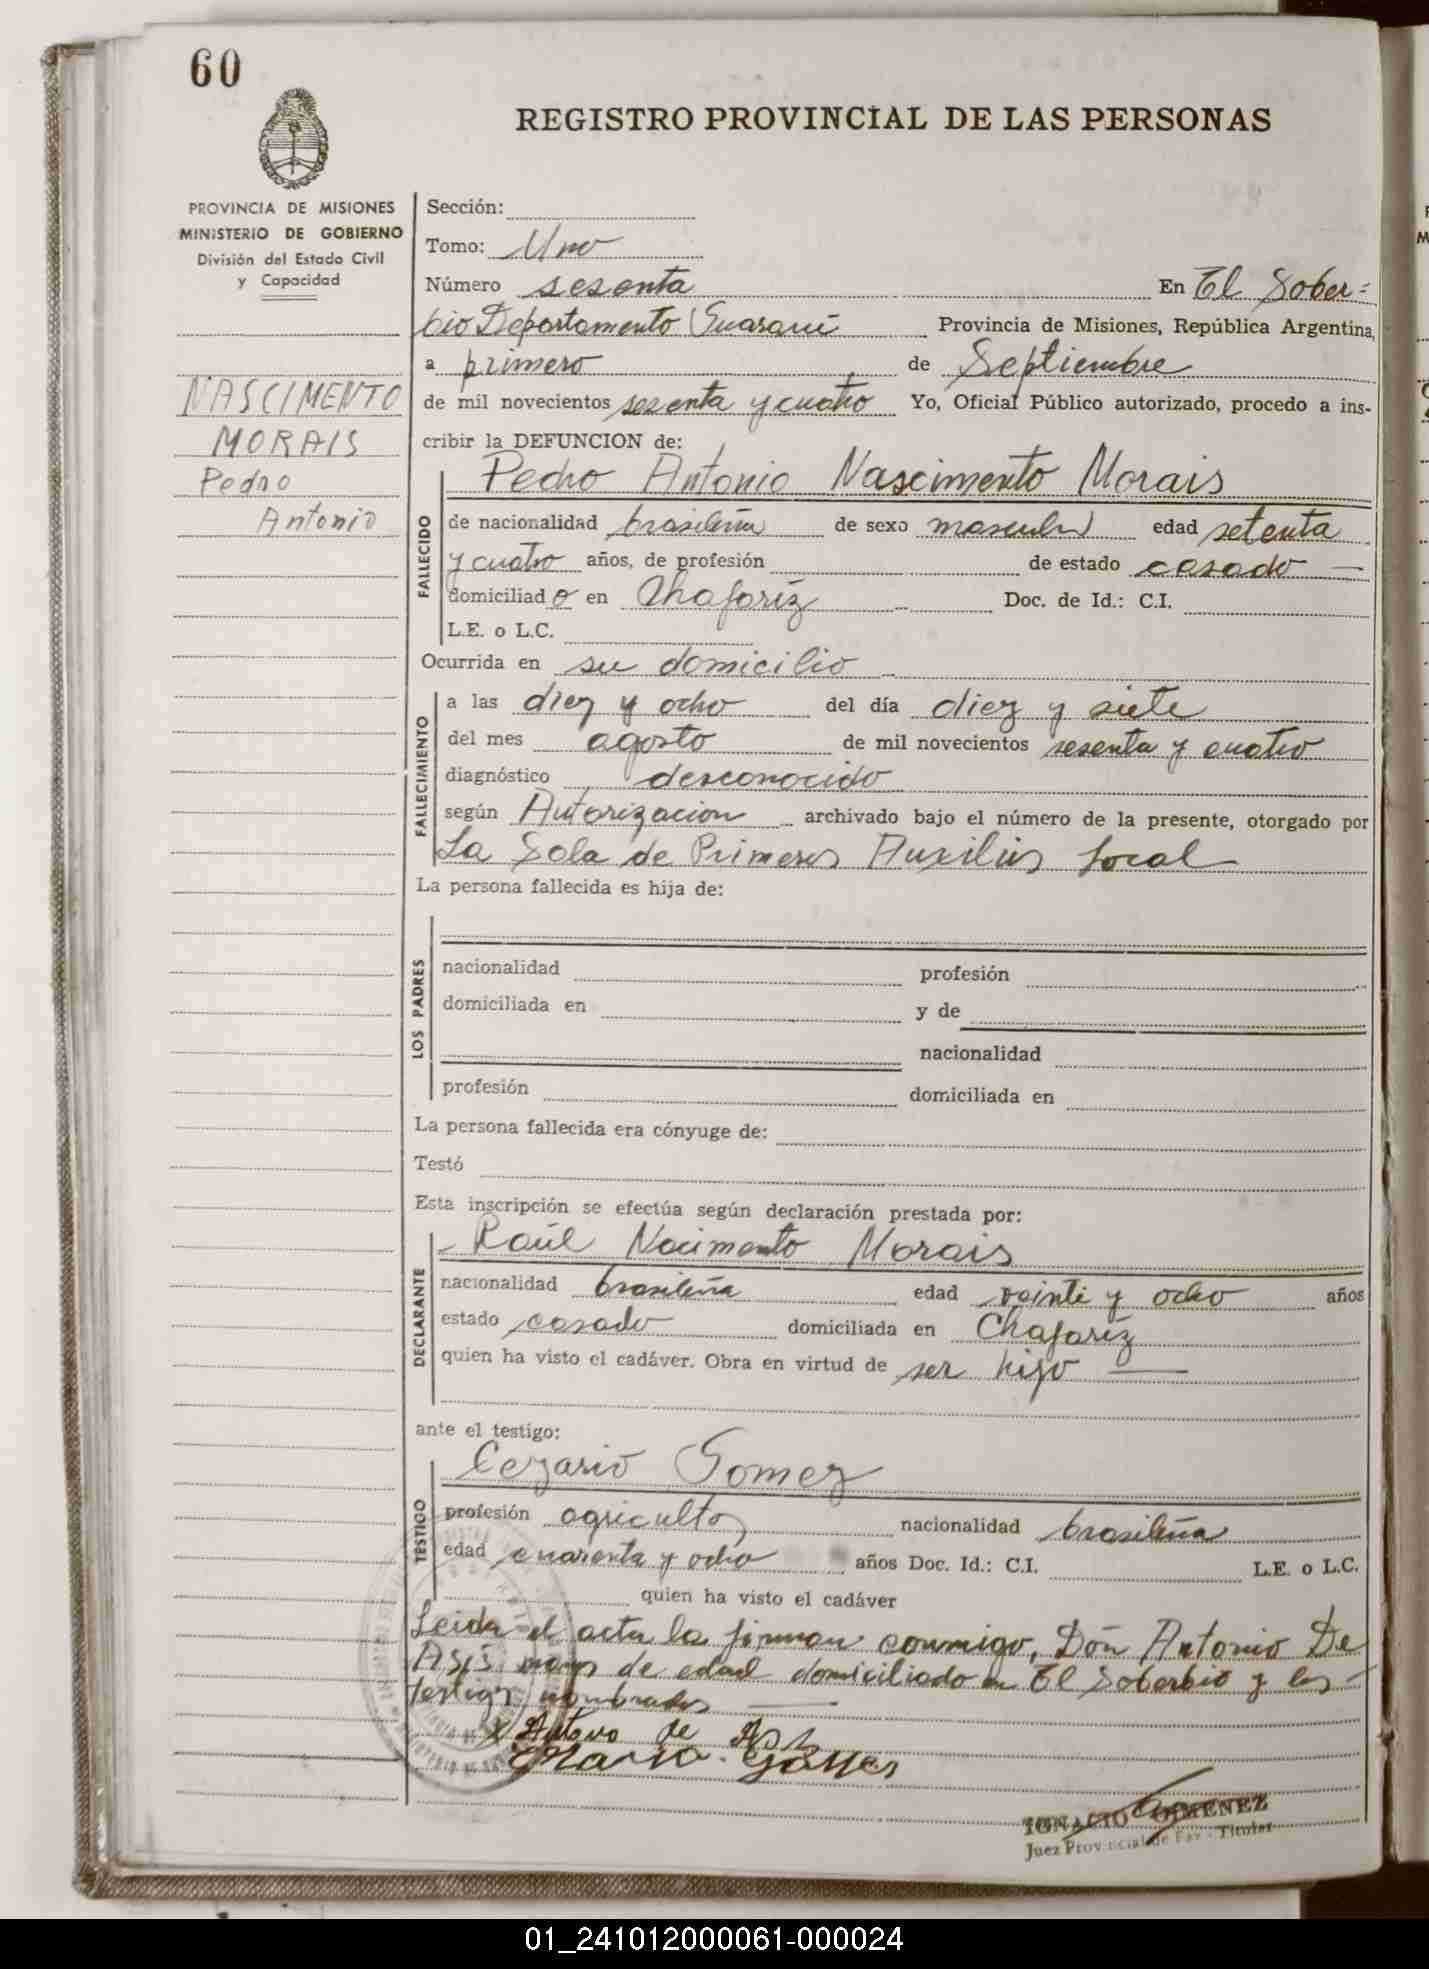 60
REGISTRO PROVINCIAL DE LAS PERSONAS
PROVINCIA DE MISIONES
MINISTERIO DE GOBIERNO
División del Estado Civil
y Capacidad
NASCIMENTO
MORAIS
Pedro
Antonio
Sección:
Tomo: Uno
Número sesenta En El Sober=
bio Departamento Guaraní Provincia de Misiones, República Argentina,
a primero de Septiembre
de mil novecientos sesenta y cuatro Yo, Oficial Público autorizado, procedo a ins-
cribir la DEFUNCION de:
FALLECIDO
Pedro Antonio Nascimento Morais
de nacionalidad brasileña de sexo mascul edad setenta
y cuatro años, de profesión de estado casado —
domiciliado en Chafaríz Doc. de Id.: C.I.
L.E. o L.C.
Ocurrida en su domicilio
FALLECIMIENTO
a las diez y ocho del día diez y siete
del mes agosto de mil novecientos sesenta y cuatro
diagnóstico desconocido
según Autorizacion archivado bajo el número de la presente, otorgado por
La Sala de Primeros Auxilios local
La persona fallecida es hija de:
LOS PADRES
nacionalidad profesión
domiciliada en y de
nacionalidad
profesión domiciliada en
La persona fallecida era cónyuge de:
Testó
Esta inscripción se efectúa según declaración prestada por:
DECLARANTE
Raúl Nacimento Morais
nacionalidad brasileña edad veinti y ocho años
estado casado domiciliada en Chafaríz
quien ha visto el cadáver. Obra en virtud de ser hijo —
ante el testigo:
TESTIGO
Cezario Gomez
profesión agricultor nacionalidad brasileña
edad cuarenta y ocho años Doc. Id.: C.I. L.E. o L.C.
quien ha visto el cadáver
Leida el acta la firman conmigo, Don Antonio De
Asís mayor de edad domiciliado en El Soberbio y los
testigos nombrados —
x Antonio de
IGNACIO GIMENEZ
Juez Provincial de Paz - Titular
01_241012000061-000024